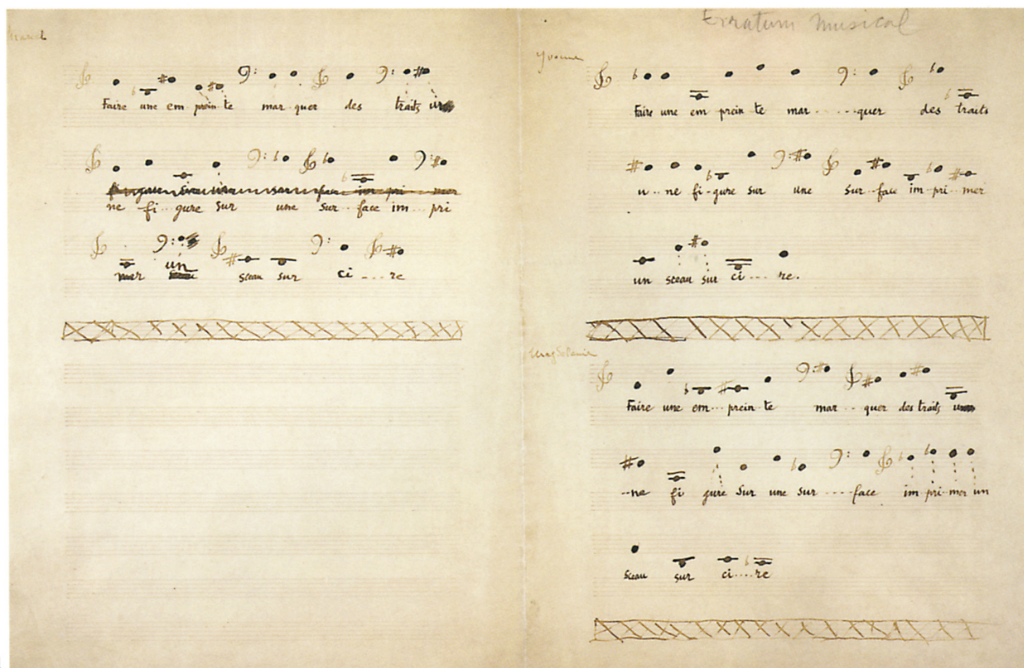 Erratum Musical
Marcel
Faire une em prein te mar quer des traits u
ne fi gure sur une sur face im pri
mer un sceau sur ci .... re
Yvonne
Faire une em prein te mar ....quer des traits
u...ne fi-gure sur une sur..face im pri...mer
un sceau sur ci.... re.
Magdeleine
Faire une em... prein te mar ...quer des traits u
...ne fi gure sur une sur ....face im pri mer un
sceau sur ci....re